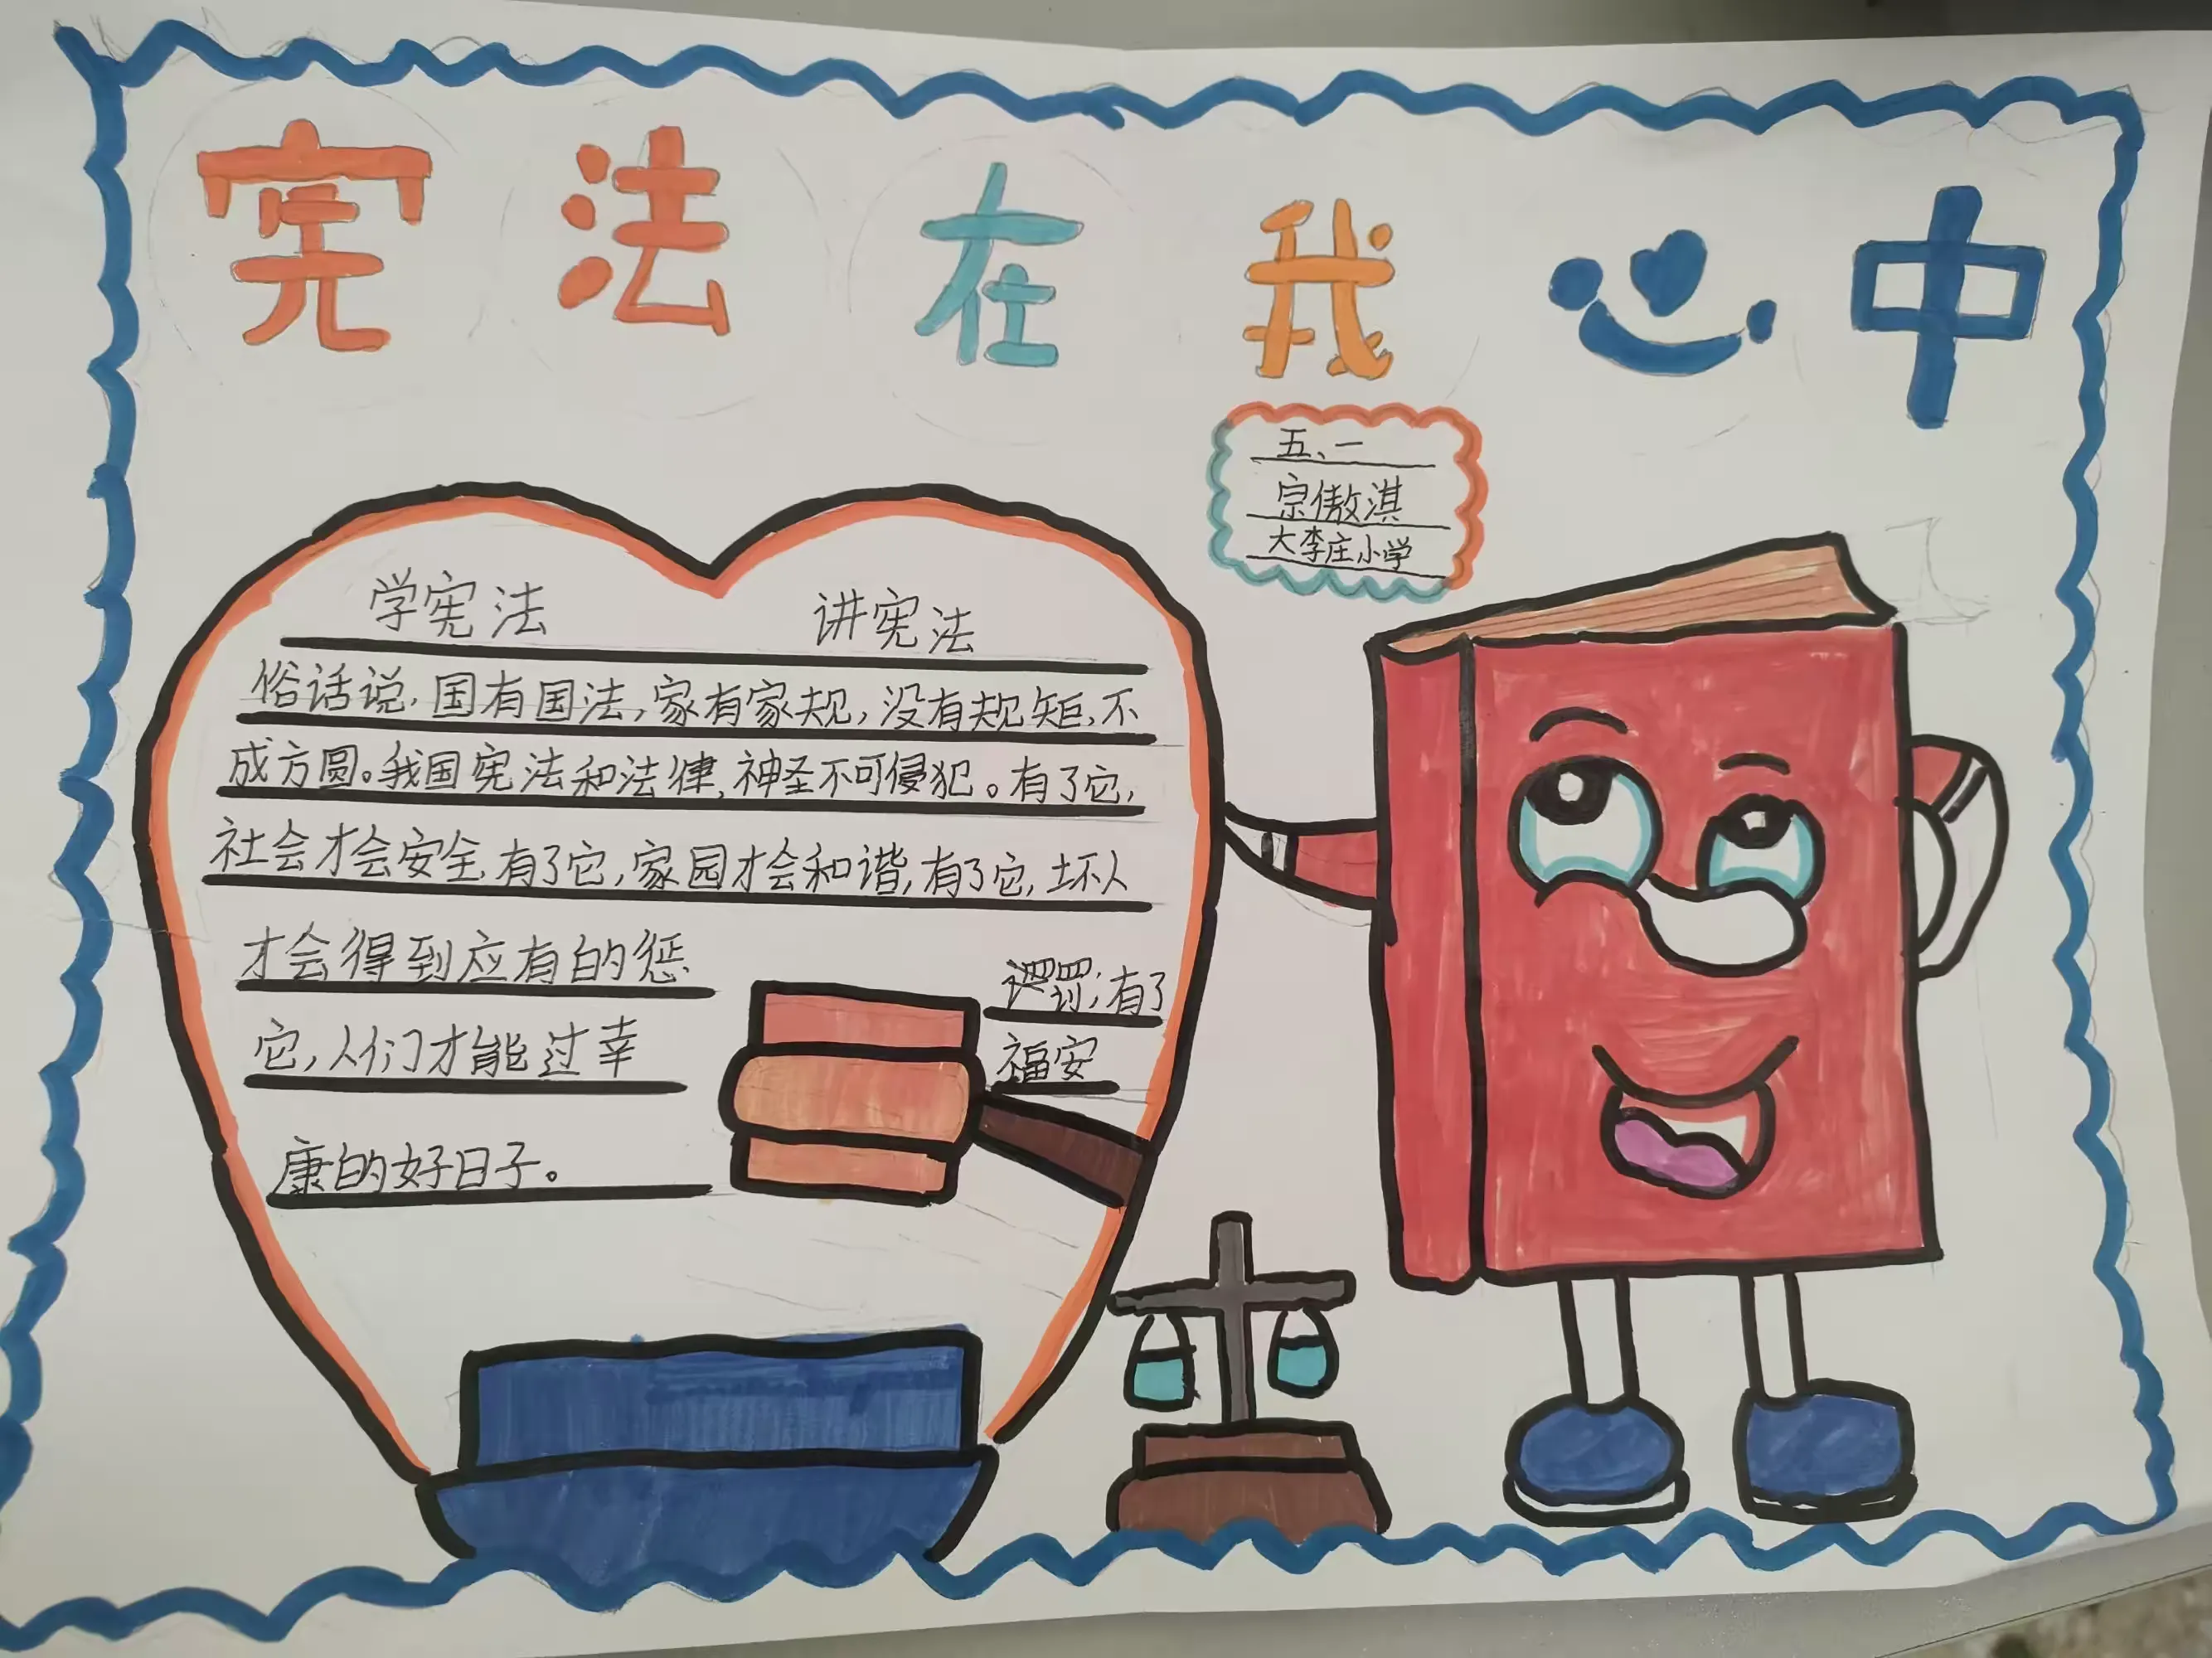 宪法在我心中
五、一
宗傲淇
大李庄小学
学宪法 讲宪法
俗话说,国有国法,家有家规,没有规矩,不
成方圆。我国宪法和法律,神圣不可侵犯。有了它,
社会才会安全,有了它,家园才会和谐,有了它,坏人
才会得到应有的惩 罚;有了
它,人们才能过幸 福安
康的好日子。